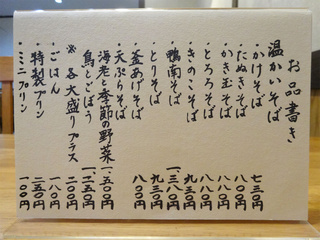 お品書き
温かいそば
・かけそば 七三〇円
・たぬきそば 八〇〇円
・かき玉そば 八八〇円
・とろろそば 八八〇円
・きのこそば 九三〇円
・鴨南そば 一、三八〇円
・とりそば 九三〇円
・釜あげそば 八〇〇円
・天ぷらそば
海老と季節の野菜 一、五〇〇円
鳥とごぼう 一、二五〇円
※各大盛りプラス 二〇〇円
・ごはん 一八〇円
・特製プリン 二五〇円
・ミニプリン 一〇〇円